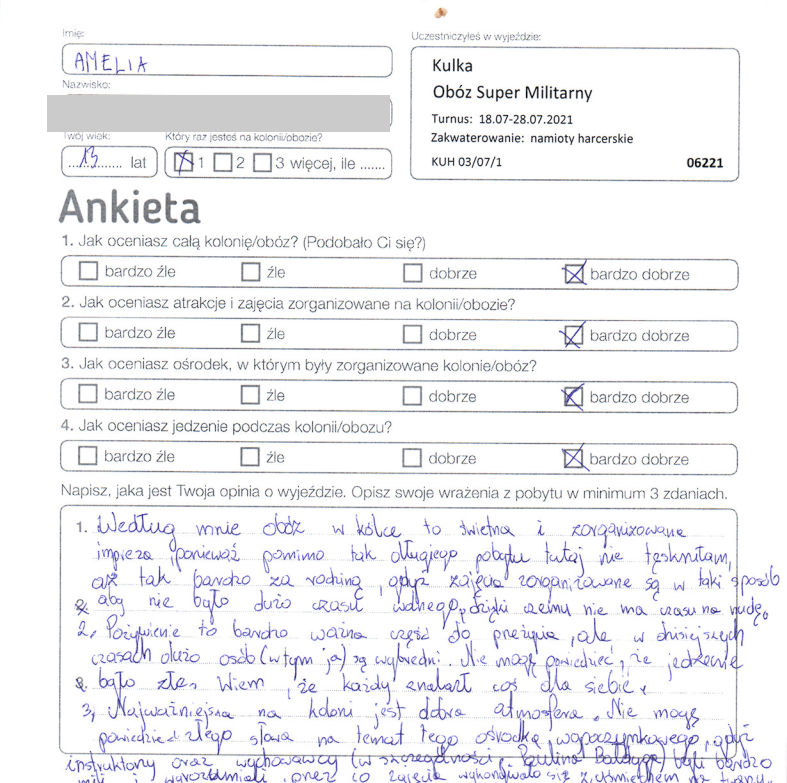 Imię:
AMELIA
Nazwisko:
Twój wiek:
13 lat
Który raz jesteś na kolonii/obozie?
1 2 3 więcej, ile .......
Uczestniczyłeś w wyjeździe:
Kulka
Obóz Super Militarny
Turnus: 18.07-28.07.2021
Zakwaterowanie: namioty harcerskie
KUH 03/07/1 06221
Ankieta
1. Jak oceniasz całą kolonię/obóz? (Podobało Ci się?)
bardzo źle źle dobrze bardzo dobrze
2. Jak oceniasz atrakcje i zajęcia zorganizowane na kolonii/obozie?
bardzo źle źle dobrze bardzo dobrze
3. Jak oceniasz ośrodek, w którym były zorganizowane kolonie/obóz?
bardzo źle źle dobrze bardzo dobrze
4. Jak oceniasz jedzenie podczas kolonii/obozu?
bardzo źle źle dobrze bardzo dobrze
Napisz, jaka jest Twoja opinia o wyjeździe. Opisz swoje wrażenia z pobytu w minimum 3 zdaniach.
1. Według mnie obóz w kólce to świetna i zorganizowana
impreza, ponieważ pomimo tak długiego pobytu tutaj nie tęskniłam,
aż tak bardzo za rodziną, gdyż zajęcia zorganizowane są w taki sposób
2. aby nie było dużo czasu wolnego, dzięki czemu nie ma czasu na nudę.
2, Pożywienie to bardzo ważna część do przeżycia, ale w dzisiejszych
czasach dużo osób (w tym ja) są wybredni. Nie mogę powiedzieć, że jedzenie
3. było złe. Wiem, że każdy znalazł coś dla siebie.
3, Najważniejsza na koloni jest dobra atmosfera. Nie mogę
powiedzieć złego słowa na temat tego ośrodka wypoczynkowego, gdyż
instruktorzy oraz wychowawcy (w szczególności p. Paulina) byli bardzo
mili i wyrozumiali, oraz co zajęcia wykonywało się z uśmiechem na twarzy.